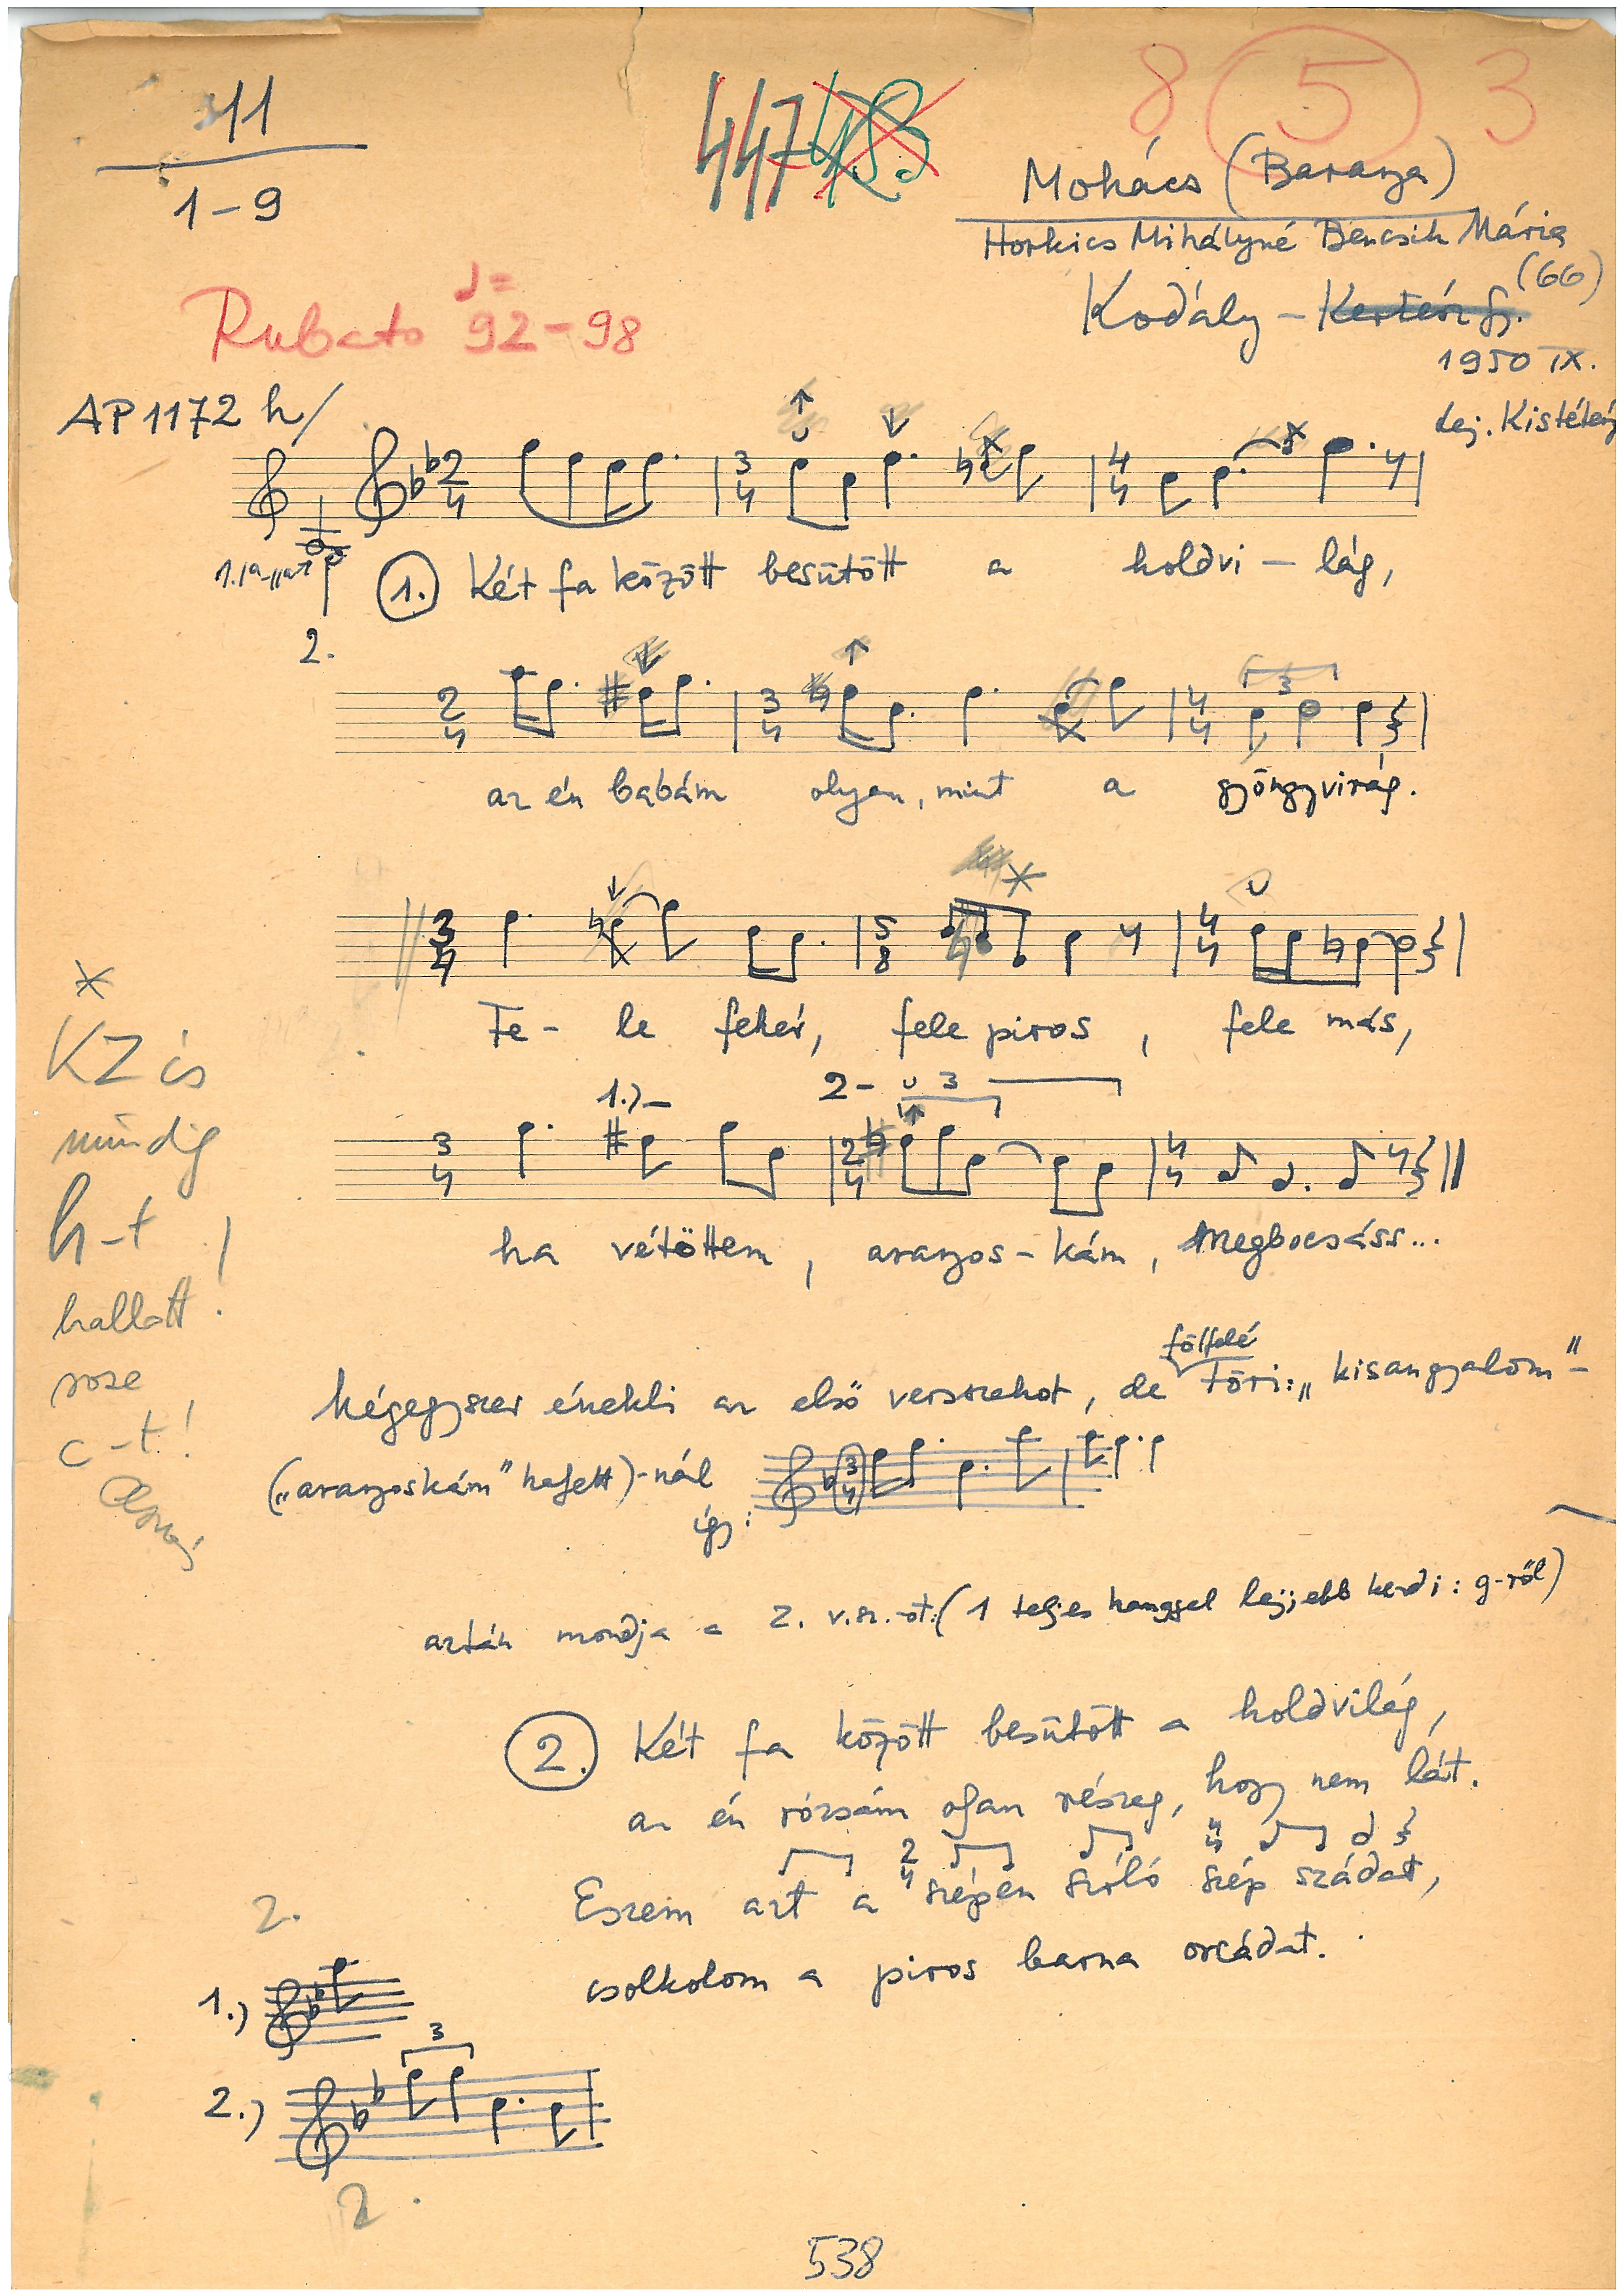 11
1-9
447
8 5 3
Mohács (Baranya)
Horkics Mihályné Bencsik Mária
(66)
Kodály - Kertész Gy.
1950 IX.
lej. Kistétényi
Rubato ♩= 92-98
AP 1172 h/
2/4 3/4 4/4
1. Két fa között besütött a holdvi - lág,
2.
2/4 3/4 4/4 3
az én babám olyan, mint a gyöngyvirág.
3/4 5/8 * 4/4
Fe - le fehér, fele piros, fele más,
1.) 2- 3
3/4 2/4 4/4
ha vétöttem, aranyos - kám, Megbocsáss...
*
KZ is
mindig
h-t
hallott!
sose
c-t!
Mégegyszer énekli az első versszakot, de fölfelé töri: „kisangyalom"-
(„aranyoskám" helyett)-nál
így: 3/4
aztán mondja a 2. v.sz.-ot. (1 teljes hanggal lejjebb kezdi: g-ről)
2. Két fa között besütött a holdvilág,
az én rózsám olyan részeg, hogy nem lát.
2/4 4/4
Eszem azt a szépen szóló szép szádat,
csolkolom a piros barna orcádat.
2.
1.)
3
2.)
2.
538